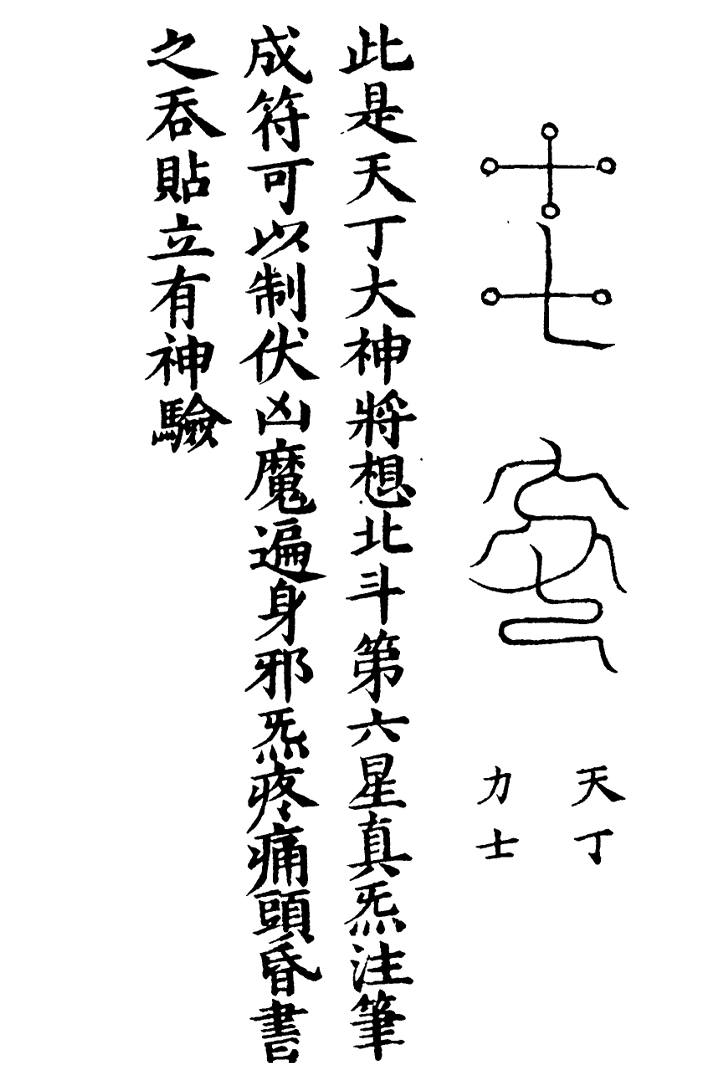 天丁
力士
此是天丁大神將想北斗第六星真炁注筆
成符可以制伏凶魔遍身邪炁疼痛頭昏書
之吞貼立有神驗